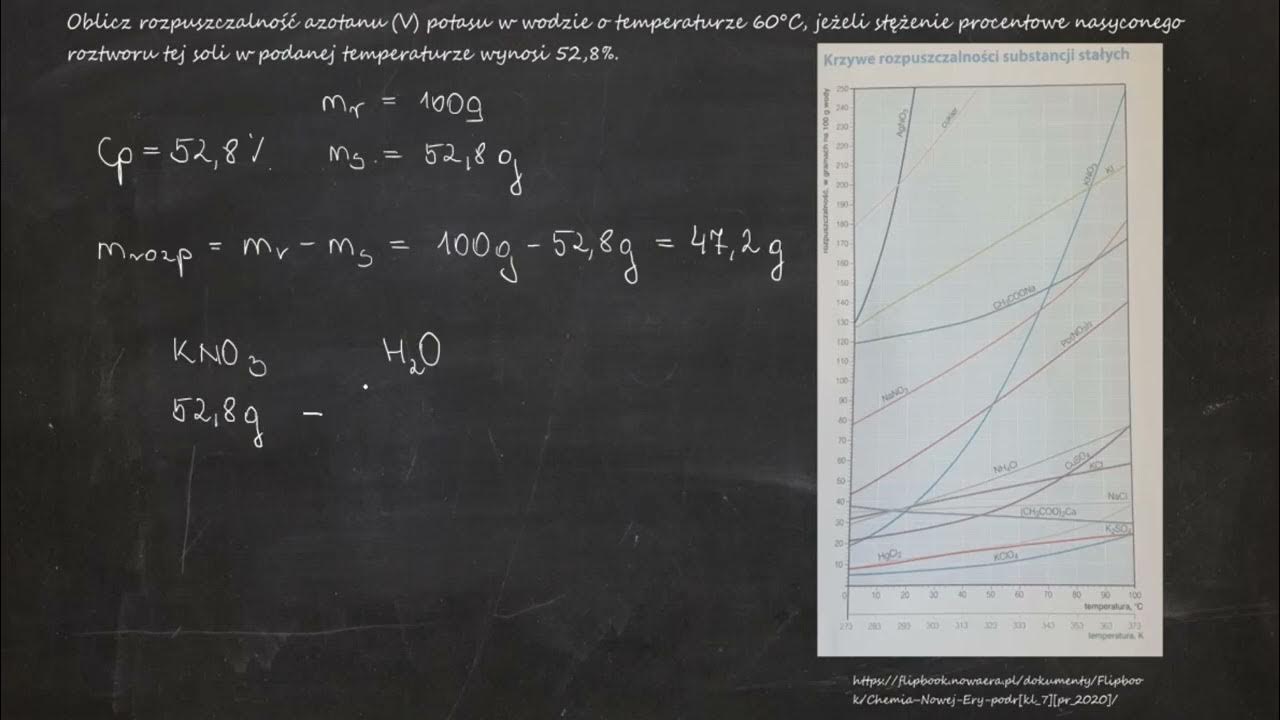 Oblicz rozpuszczalność azotanu (V) potasu w wodzie o temperaturze 60°C, jeżeli stężenie procentowe nasyconego
roztworu tej soli w podanej temperaturze wynosi 52,8%.
mr = 100g
Cp = 52,8% ms = 52,8g
mrozp = mr - ms = 100g - 52,8g = 47,2g
KNO3 H2O
52,8g -
Krzywe rozpuszczalności substancji stałych
rozpuszczalność, w gramach na 100 g wody
250
240
230
220
210
200
190
180
170
160
150
140
130
120
110
100
90
80
70
60
50
40
30
20
10
AgNO3
cukier
KNO3
KI
CH3COONa
Pb(NO3)2
NaNO3
CuSO4
KCl
NaCl
(CH3COO)2Ca
K2SO4
HgCl2
KClO4
0 10 20 30 40 50 60 70 80 90 100
temperatura, °C
273 283 293 303 313 323 333 343 353 363 373
temperatura, K
https://flipbook.nowaera.pl/dokumenty/Flipboo
k/Chemia-Nowej-Ery-podr[kl_7][pr_2020]/